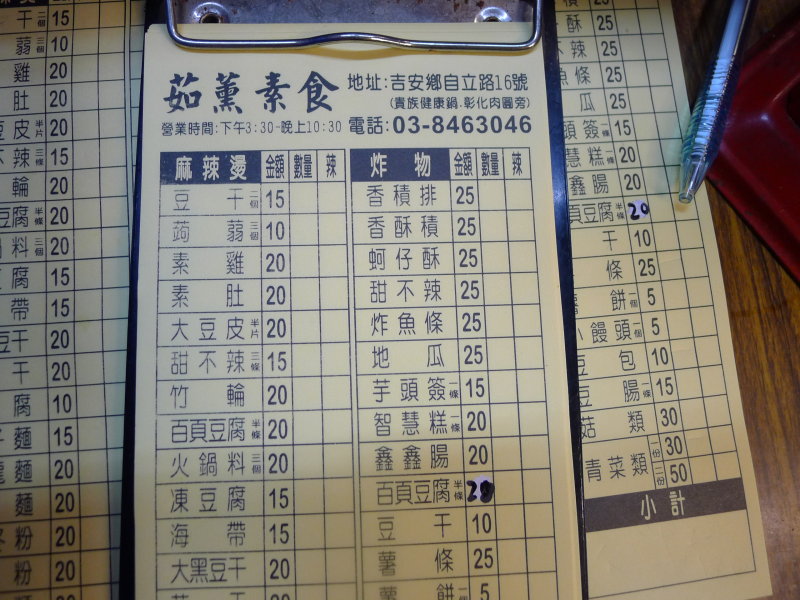 干 二個
蒟 三個 10
雞 20
肚 20
豆皮 半片 20
不辣 三條 15
輪 20
豆腐 半條 20
鍋料 三個 20
腐 15
帶 15
豆干 20
干 20
腐 10
麵 15
麵 20
麵 20
粉 20
粉 20
茹薰素食
地址:吉安鄉自立路16號
(貴族健康鍋.彰化肉圓旁)
營業時間:下午3:30-晚上10:30
電話:03-8463046
麻辣燙 金額 數量 辣
豆干 二個 15
蒟蒻 三個 10
素雞 20
素肚 20
大豆皮 半片 20
甜不辣 三條 15
竹輪 20
百頁豆腐 半條 20
火鍋料 三個 20
凍豆腐 15
海帶 15
大黑豆干 20
炸物 金額 數量 辣
香積排 25
香酥積 25
蚵仔酥 25
甜不辣 25
炸魚條 25
地瓜 25
芋頭簽 一條 15
智慧糕 一條 20
鑫鑫腸 20
百頁豆腐 半條 20
豆干 10
薯條 25
薯餅 一個 5
積 25
酥 25
辣 25
魚條 25
瓜 25
頭簽 一條 15
慧糕 一條 20
鑫腸 20
頁豆腐 半條 20
干 10
條 25
薯餅 一個 5
小饅頭 一個 5
豆包 10
豆腸 一條 15
菇類 30
青菜類 一份 30
二份 50
小計